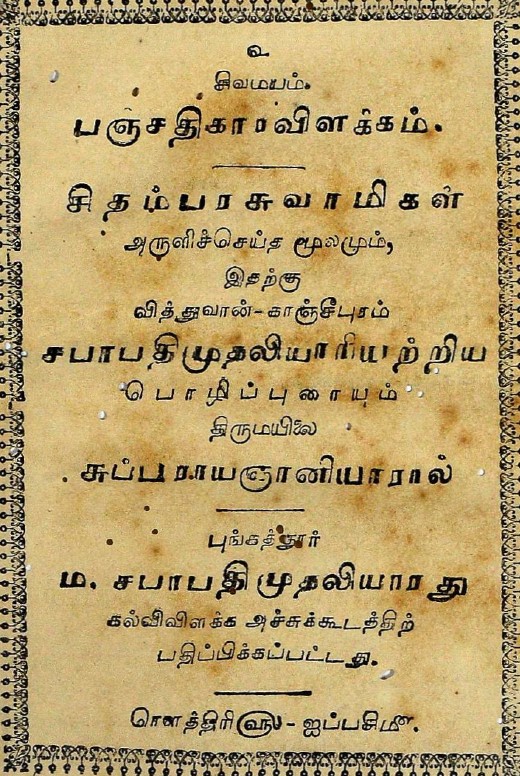 உ
சிவமயம்.
பஞ்சதிகாரவிளக்கம்.
சிதம்பரசுவாமிகள்
அருளிச்செய்த மூலமும்,
இதற்கு
வித்துவான்-காஞ்சீபுரம்
சபாபதிமுதலியாரியற்றிய
பொழிப்புரையும்
திருமயிலை
சுப்பராயஞானியாரால்
புங்கத்தூர்
ம. சபாபதிமுதலியாரது
கல்விவிளக்க அச்சுக்கூடத்திற்
பதிப்பிக்கப்பட்டது.
ரௌத்திரி௵-ஐப்பசி௴.